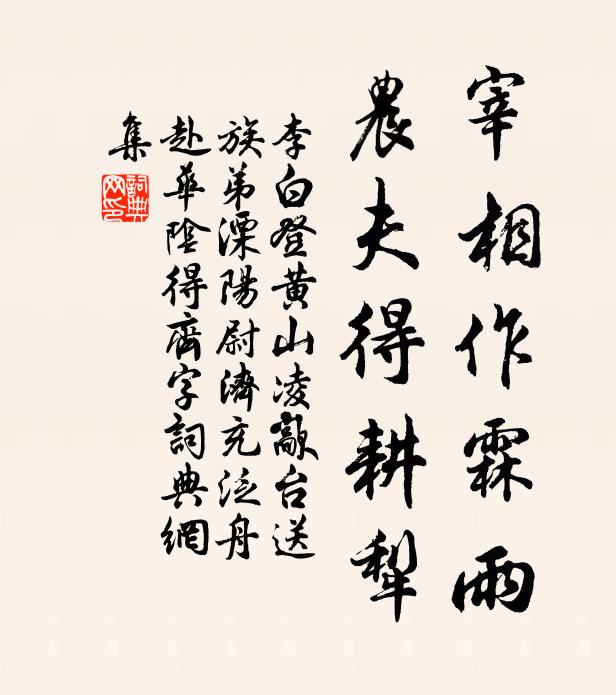 宰相作霖雨
農夫得耕犁
李白登黄山凌歊台送
族弟溧陽尉濟充泛舟
赴華陰得齊字詞典網
集
詞典
网印